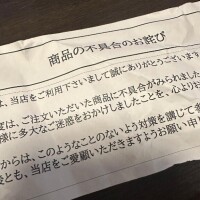 商品の不具合のお詫び
は、当店をご利用下さいまして誠にありがとうございます
度は、ご注文いただいた商品に不具合がみられました
様に多大なご迷惑をおかけしましたことを、心よりお
からは、このようなことのないよう対策を講じて
後とも、当店をご愛顧いただきますようお願い申し